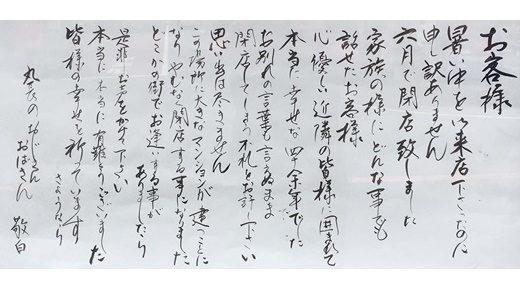 お客様
暑い中を御来店下さったのに
申し訳ありません
六月で閉店致しました
家族の様にどんな事でも
話せたお客様
心優しい近隣の皆様に囲まれて
本当に幸せな四十余年でした
お別れの言葉も言えぬまま
閉店してしまう不礼をお許し下さい
思い出は尽きません
この場所に大きなマンションが建つことに
なりやむなく閉店する事になりました
どこかの街でお逢いする事が
ありましたら
是非お声をかけて下さい
本当に本当に有難うございました
皆様の幸せを祈っています
さようなら
おじさん
おばさん 敬白